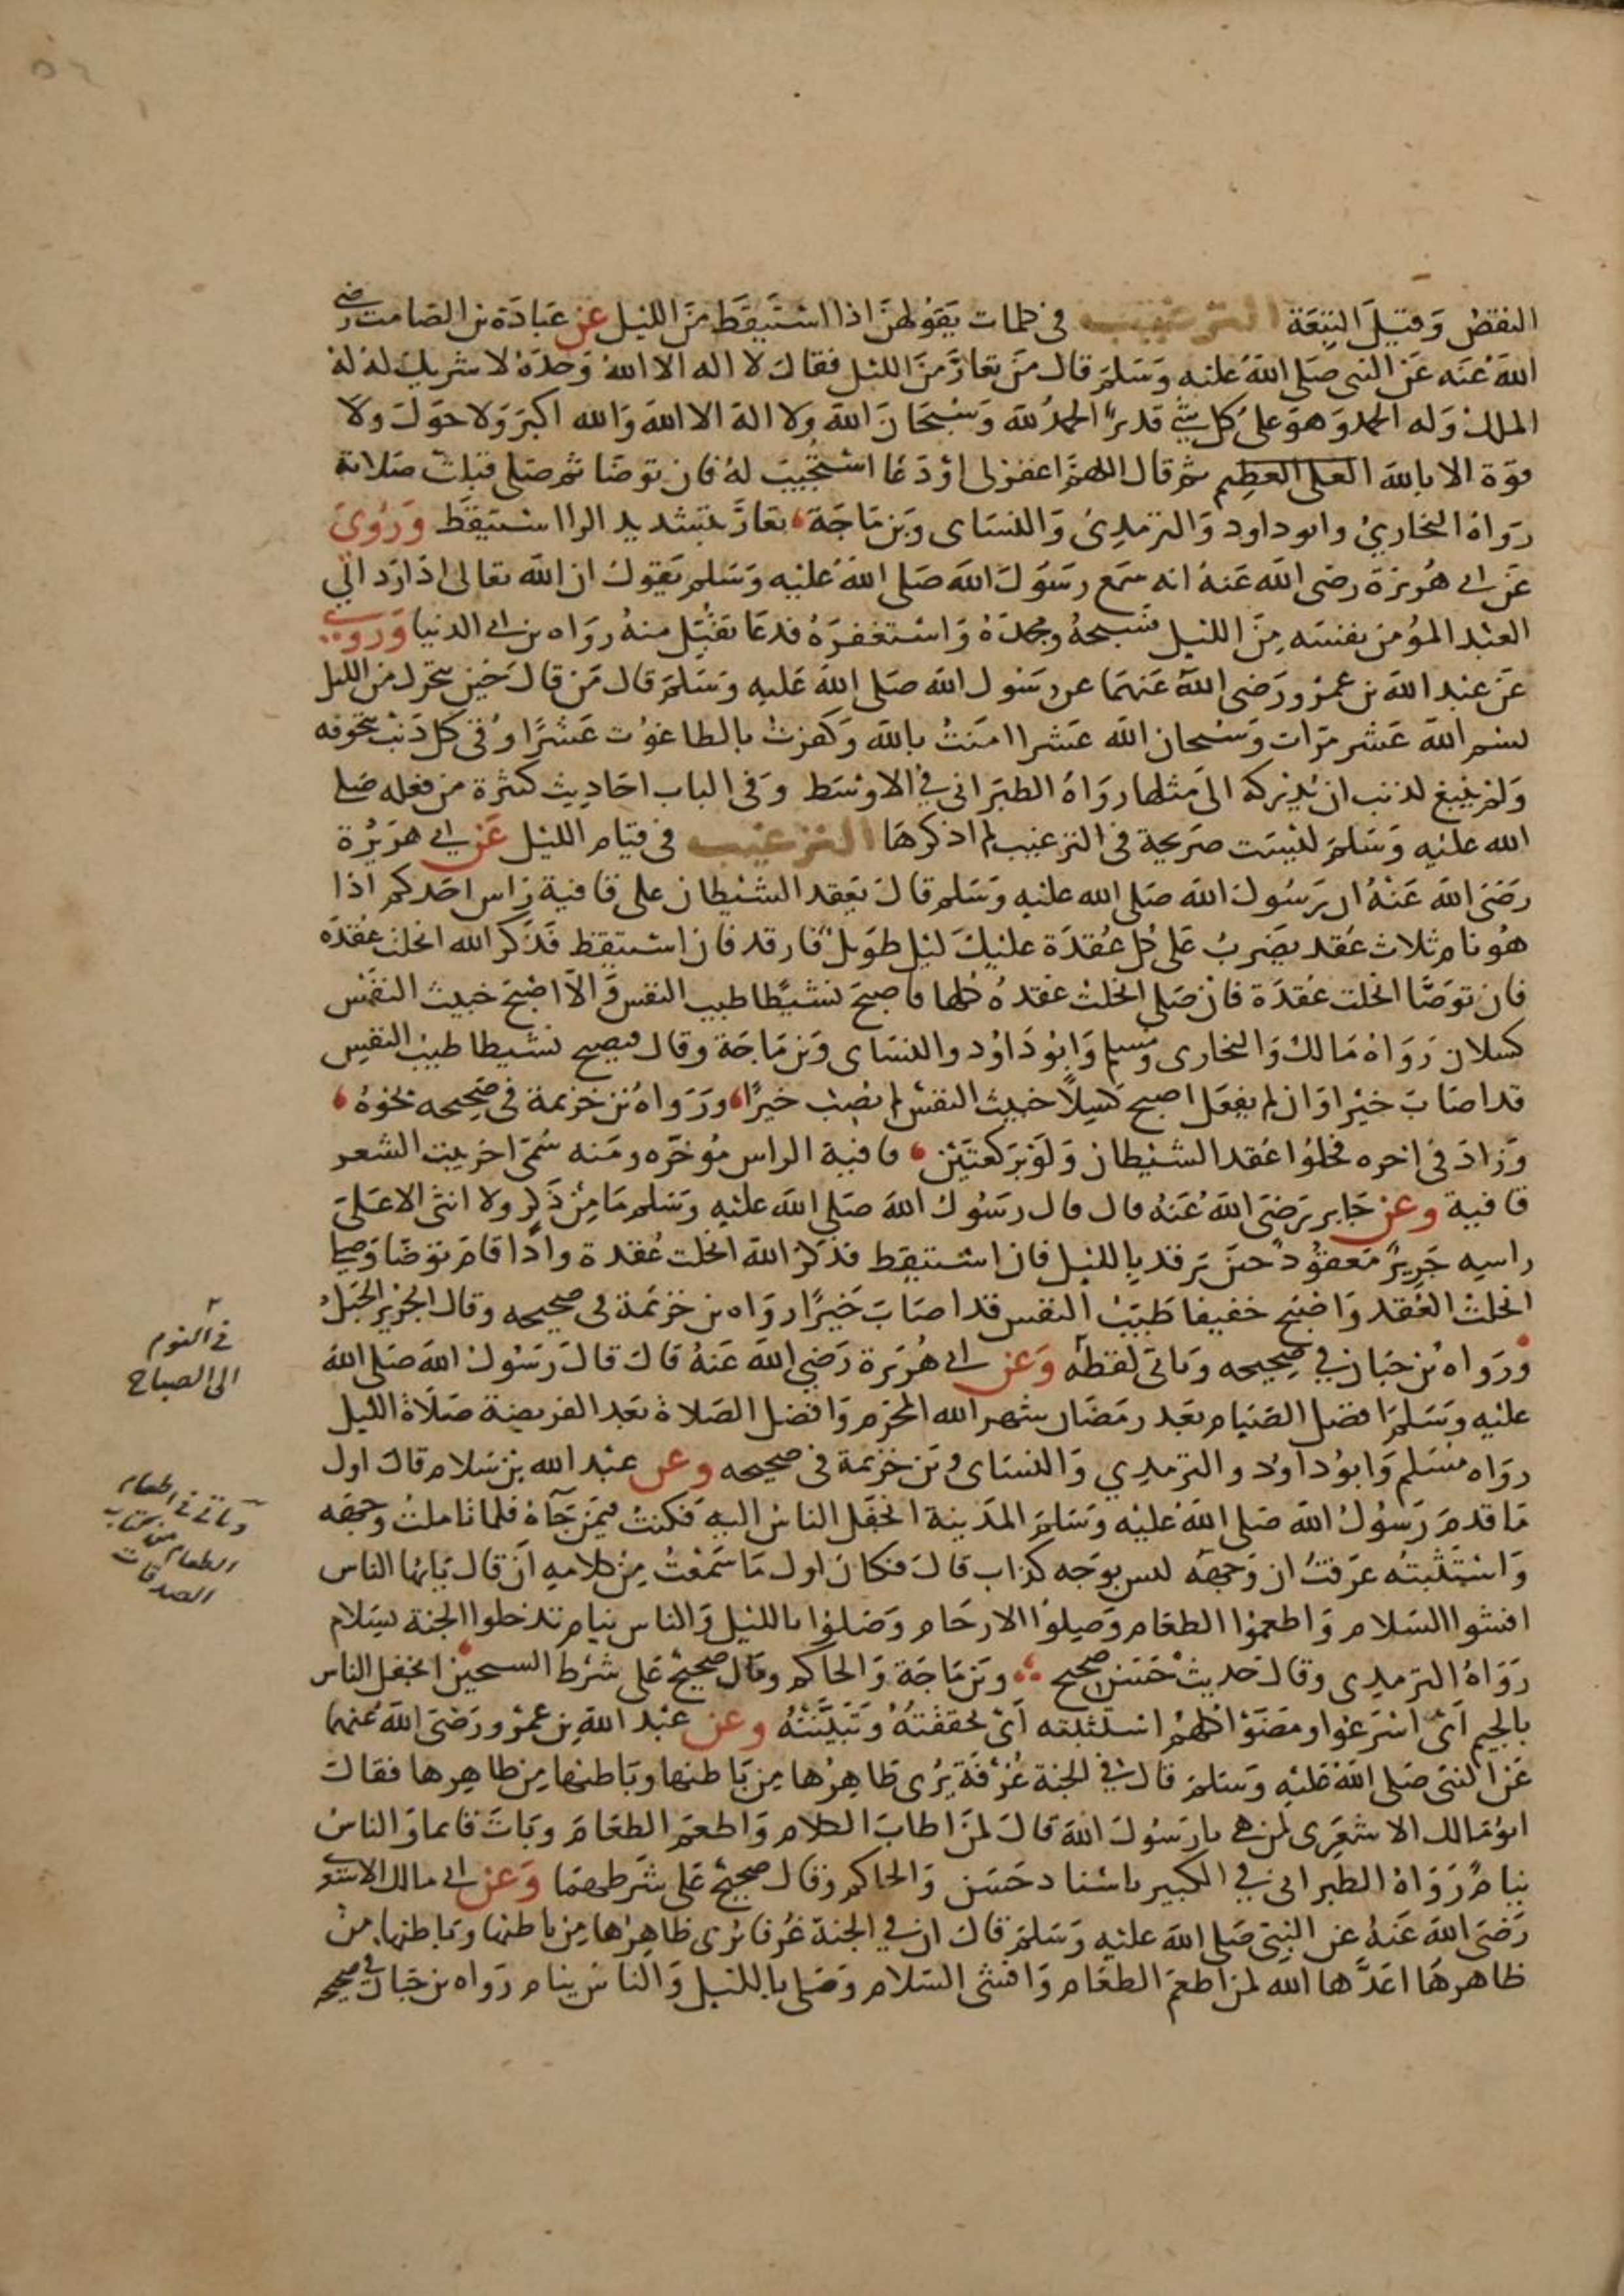 النقص وقيل التبعة الترغيب في كلمات يقولهن اذا استيقظ من الليل عن عبادة بن الصامت رضي
الله عنه عن النبي صلى الله عليه وسلم قال من تعار من الليل فقال لا اله الا الله وحده لا شريك له له
الملك وله الحمد وهو على كل شي قدير الحمد لله وسبحان الله ولا اله الا الله والله اكبر ولا حول ولا
قوة الا بالله العلى العظيم ثم قال اللهم اغفر لى او دعا استجيب له فان توضا ثم صلى قبلت صلاته
رواه البخاري وابو داود والترمذي والنساى وبن ماجة تعار بتشديد الرا استيقظ وروي
عن ابي هريرة رضى الله عنه انه سمع رسول الله صلى الله عليه وسلم يقول ان الله تعالى اذا رد الي
العبد المؤمن نفسه من الليل فسبحه ومجده واستغفره فدعا تقبل منه رواه بن ابي الدنيا وروي
عن عبد الله بن عمرو رضى الله عنهما عن رسول الله صلى الله عليه وسلم قال من قال حين يتحرك من الليل
بسم الله عشر مرات وسبحان الله عشرا امنت بالله وكفرت بالطاغوت عشرا وقي كل ذنب يتخوفه
ولم ينبغ لذنب ان يدركه الى مثلها رواه الطبرانى في الاوسط وفى الباب احاديث كثيرة من فعله صلى
الله عليه وسلم ليست صريحة فى الترغيب لم اذكرها الترغيب فى قيام الليل عن ابي هريرة
رضى الله عنه ان رسول الله صلى الله عليه وسلم قال يعقد الشيطان على قافية راس احدكم اذا
هو نام ثلاث عقد يضرب على كل عقدة عليك ليل طويل فارقد فان استيقظ فذكر الله انحلت عقدة
فان توضا انحلت عقدة فان صلى انحلت عقده كلها فاصبح نشيطا طيب النفس والا اصبح خبيث النفس
كسلان رواه مالك والبخارى ومسلم وابو داود والنساى وبن ماجة وقال فيصبح نشيطا طيب النفس
قد اصاب خيرا وان لم يفعل اصبح كسلا خبيث النفس لم يصب خيرا ورواه بن خزيمة فى صحيحه نحوه
وزاد فى اخره فحلوا عقد الشيطان ولو بركعتين قافية الراس مؤخره ومنه سمى اخر بيت الشعر
قافية وعن جابر رضى الله عنه قال قال رسول الله صلى الله عليه وسلم ما من ذكر ولا انثى الا على
راسه جرير معقود حين يرقد بالليل فان استيقظ فذكر الله انحلت عقدة واذا قام توضا وصلى
انحلت العقد واصبح خفيفا طيب النفس قد اصاب خيرا رواه بن خزيمة فى صحيحه وقال الجرير الحبل
ورواه بن حبان في صحيحه وياتى لفظه وعن ابي هريرة رضي الله عنه قال قال رسول الله صلى الله
عليه وسلم افضل الصيام بعد رمضان شهر الله المحرم وافضل الصلاة بعد الفريضة صلاة الليل
رواه مسلم وابو داود والترمذي والنساى وبن خزيمة فى صحيحه وعن عبد الله بن سلام قال اول
ما قدم رسول الله صلى الله عليه وسلم المدينة انجفل الناس اليه فكنت فيمن جآه فلما تاملت وجهه
واستثبته عرفت ان وجهه ليس بوجه كذاب قال فكان اول ما سمعت من كلامه ان قال يايها الناس
افشوا السلام واطعموا الطعام وصلوا الارحام وصلوا بالليل والناس نيام تدخلوا الجنة بسلام
رواه الترمذى وقال حديث حسن صحيح وبن ماجة والحاكم وقال صحيح على شرط الشيخين انجفل الناس
بالجيم اى اسرعوا ومضوا كلهم استثبته اى تحققته وتبينته وعن عبد الله بن عمرو رضى الله عنهما
عن النبى صلى الله عليه وسلم قال في الجنة غرفة يرى ظاهرها من باطنها وباطنها من ظاهرها فقال
ابو مالك الاشعرى لمن هي يا رسول الله قال لمن اطاب الكلام واطعم الطعام وبات قائما والناس
نيام رواه الطبرانى في الكبير باسناد حسن والحاكم وقال صحيح على شرطهما وعن ابي مالك الاشعر
رضى الله عنه عن النبى صلى الله عليه وسلم قال ان في الجنة غرفا يرى ظاهرها من باطنها وباطنها من
ظاهرها اعدها الله لمن اطعم الطعام وافشى السلام وصلى بالليل والناس نيام رواه بن حبان في صحيحه
في النوم
الى الصباح
وياتى في اطعام
الطعام من كتاب
الصدقات